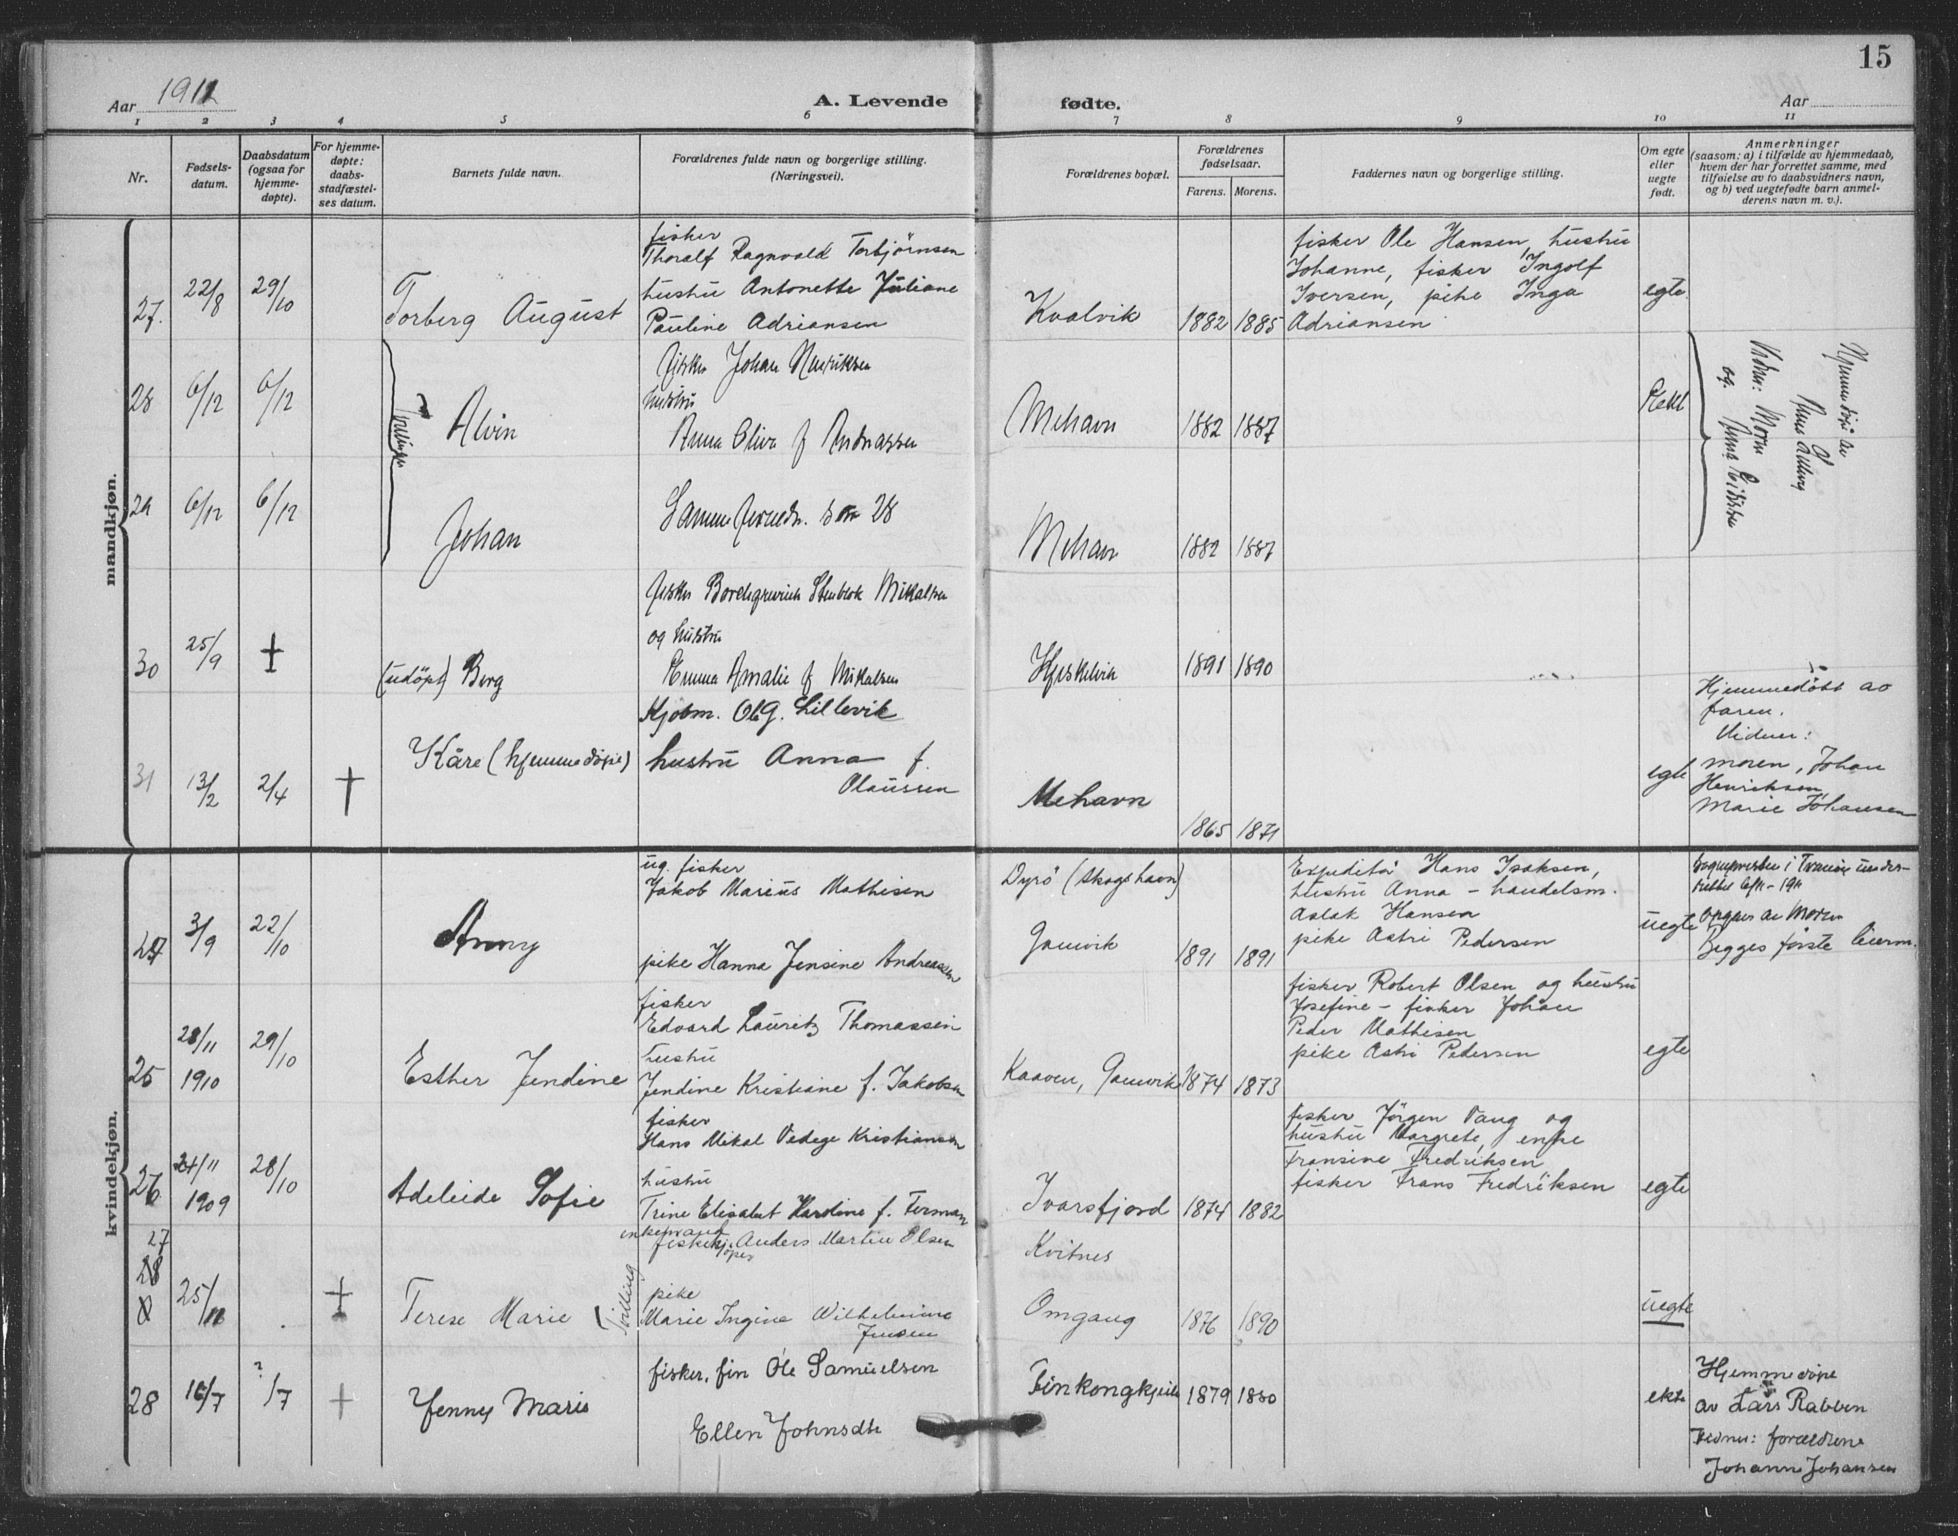 15
Aar 1911
A. Levende fødte.
Aar
1 2 3 4 5 6 7 8 9 10 11
Nr.
Fødsels-
datum.
Daabsdatum
(ogsaa for
hjemme-
døpte).
For hjemme-
døpte:
daabs-
stadfæstel-
ses datum.
Barnets fulde navn.
Forældrenes fulde navn og borgerlige stilling.
(Næringsvei).
Forældrenes bopæl.
Forældrenes
fødselsaar.
Farens. Morens.
Faddernes navn og borgerlige stilling.
Om egte
eller
uegte
født.
Anmerkninger
(saasom: a) i tilfælde av hjemmedaab,
hvem der har forrettet samme, med
tilføielse av to daabsvidners navn,
og b) ved uegtefødte barn anmel-
derens navn m. v.).
mandkjøn.
27. 22/8 29/10
Torberg August
fisker
Thoralf Ragnvald Torbjørnsen
hustru Antonette Juliane
Pauline Adriansen
Kvalvik 1882 1885
fisker Ole Hansen, hustru
Johanne, fisker Ingolf
Iversen, pike Inga
Adriansen
egte
28 6/12 6/12
Alvin
fisker Johan Henriksen
hustru
Anna Oliva f Andreassen
Mehavn 1882 1887
Ekte
29 6/12 6/12
Johan
Samme foreldr. som 28
Mehavn 1882 1887
30 25/9
(udöpt) Borg
fisker Mikalsen
og hustru
Emma Amalie f Mikalsen
1891 1890
31 13/2 2/4 †
Kåre (hjemmedöpt)
Kjøbm. Ol G. Lillevik
hustru Anna f.
Olaussen
Mehavn 1865 1871
egte
Hjemmedöbt av
faren.
Vidner:
moren, Johan
Henriksen
Marie Johansen
kvindekjøn.
24 3/9 22/10
Anny
ug. fisker
Jakob Marius Mathisen
pike Hanna Jensine Andreassen
Dyrö (Skogshavn)
Gamvik 1891 1891
Expeditør Hans Isaksen,
hustru Anna - handelsm.
Aslak Hansen
pike Astri Pedersen
uegte
Opgav av Moren
Begges første leierm.
25 28/11 1910 29/10
Esther Jendine
fisker
Edvard Lauritz Thomassen
hustru
Jendine Kristiane f. Jakobsen
Kaaven, Gamvik 1874 1873
fisker Robert Olsen og hustru
Josefine - fisker Johan
Peder Mathisen
pike Astri Pedersen
egte
26 24/11 1909 28/10
Adeleide Sofie
fisker
Hans Mikal Vedege Kristiansen
hustru
Trine Elisabet Hardine f. Ferman
Ivarsfjord 1874 1882
fisker Jörgen Vaug og
hustru Margrete, enke
Fransine Fredriksen
fisker Frans Fredriksen
egte
27 28 25/11
Terese Marie (tvilling
enkemand
fiskekjøper Anders Martin Olsen
pike
Marie Ingine Wilhelmine
Jensen
Kvitnes
Omgang 1876 1890
uegte
28 16/7 ?/7 †
Jenny Marie
fisker, fin Ole Samuelsen
Ellen Johnsdtr
Finkongkjeila 1879 1880
ekte
Hjemmedöpt
av Lars Rabben
Vidner: forældrene
Johanne Johansen